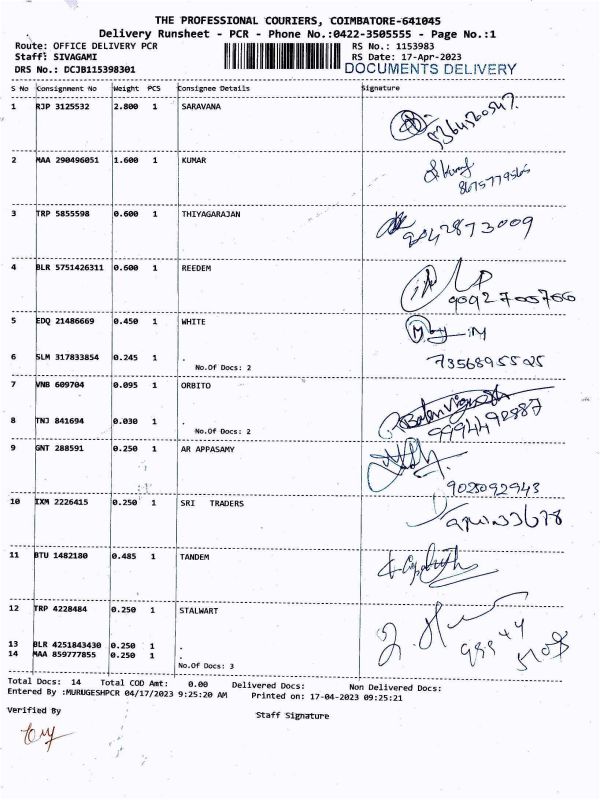 THE PROFESSIONAL COURIERS, COIMBATORE-641045
Delivery Runsheet - PCR - Phone No.:0422-3505555 - Page No.:1
Route: OFFICE DELIVERY PCR RS No.: 1153983
Staff: SIVAGAMI RS Date: 17-Apr-2023
DRS No.: DCJB115398301 DOCUMENTS DELIVERY
S No Consignment No Weight PCS Consignee Details Signature
1 RJP 3125532 2.800 1 SARAVANA
2 MAA 290496051 1.600 1 KUMAR
8675779565
3 TRP 5855598 0.600 1 THIYAGARAJAN
9042873009
4 BLR 5751426311 0.600 1 REEDEM
9092700766
5 EDQ 21486669 0.450 1 WHITE
6 SLM 317833854 0.245 1 . 7356895525
No.Of Docs: 2
7 VNB 609704 0.095 1 ORBITO
8 TNJ 841694 0.030 1
No.Of Docs: 2
9 GNT 288591 0.250 1 AR APPASAMY
9028092943
10 IXM 2226415 0.250 1 SRI TRADERS
11 BTU 1482180 0.485 1 TANDEM
12 TRP 4228484 0.250 1 STALWART
13 BLR 4251843430 0.250 1 .
14 MAA 859777855 0.250 1 .
No.Of Docs: 3
Total Docs: 14 Total COD Amt: 0.00 Delivered Docs: Non Delivered Docs:
Entered By :MURUGESHPCR 04/17/2023 9:25:20 AM Printed on: 17-04-2023 09:25:21
Verified By Staff Signature